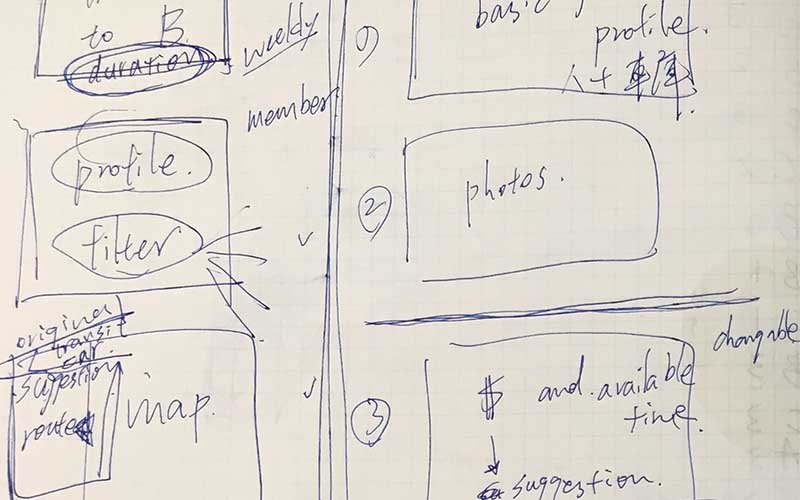 to B.
duration
weekly
member
profile.
filter
original
transit
car
suggestion
route
map.
basic
profile.
人+車庫
②
photos.
changable
③
$ and. available
time.
suggestion.